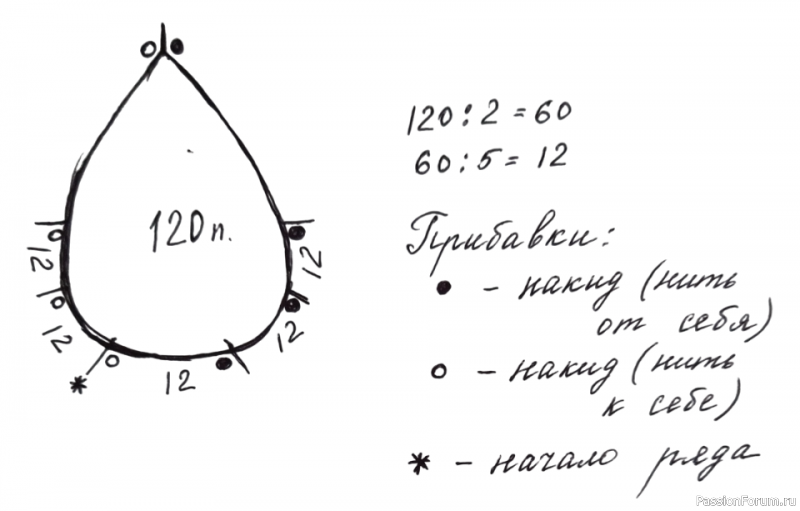 120 п.
12
12
12
12
12
*
120 : 2 = 60
60 : 5 = 12
Прибавки:
● – накид (нить
от себя)
○ – накид (нить
к себе)
* – начало ряда
PassionForum.ru